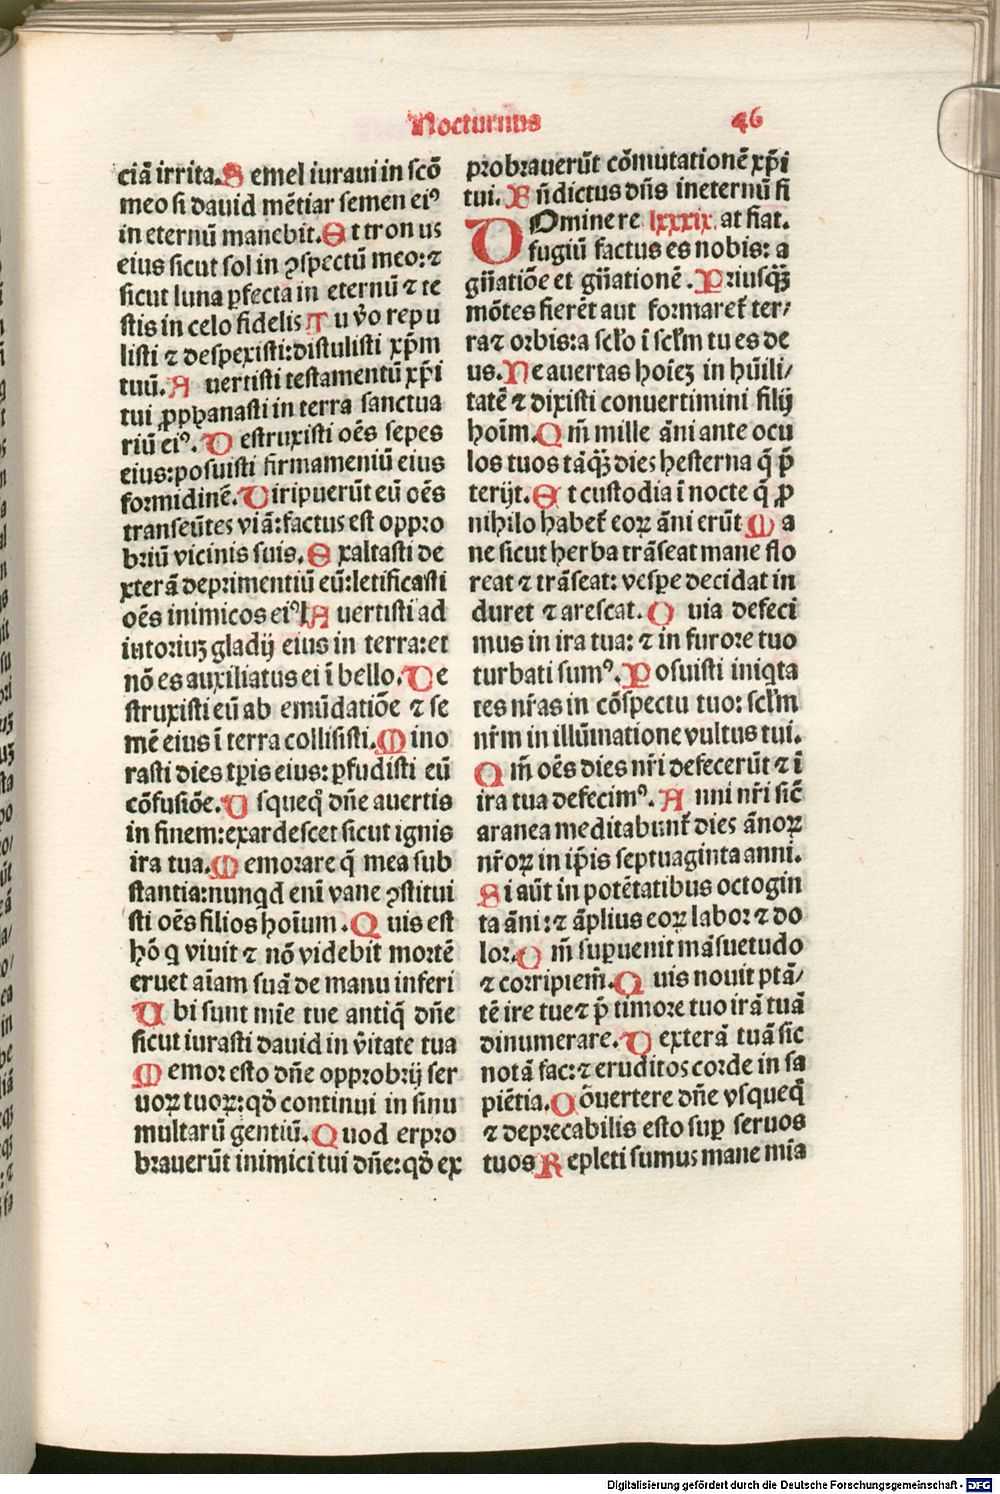 Nocturnus 46
ciā irrita. S emel iuraui in scō
meo si dauid mētiar semen eiꝰ
in eternū manebit. E t tron us
eius sicut sol in ꝯspectū meo: ⁊
sicut luna ꝑfecta in eternū ⁊ te
stis in celo fidelis T u v̊o repu
listi ⁊ despexisti: distulisti xp̄m
tuū. A uertisti testamentū xp̄i
tui ꝓphanasti in terra sanctua
riū eiꝰ. D estruxisti oēs sepes
eius: posuisti firmameniū eius
formidinē. D iripuerūt eū oēs
transeūtes viā: factus est oppro
briū vicinis suis. E xaltasti de
xterā deprimentiū eū: letificasti
oēs inimicos eiꝰ A uertisti ad
iutoriuꝫ gladij eius in terra: et
nō es auxiliatus ei ī bello. D e
struxisti eū ab emūdatiōe ⁊ se
mē eius ī terra collisisti. M ino
rasti dies tp̄is eius: ꝑfudisti eū
cōfusiōe. U squeq̊ dn̄e auertis
in finem: exardescet sicut ignis
ira tua. M emorare q̄ mea sub
stantia: nunqd enī vane ꝯstitui
sti oēs filios hoīum. Q uis est
hō q viuit ⁊ nō videbit mortē
eruet aīam suā de manu inferi
U bi sunt mīe tue antiq̄ dn̄e
sicut iurasti dauid in v̊itate tua
M emor esto dn̄e opprobrij ser
uoꝝ tuoꝝ: qd̊ continui in sinu
multarū gentiū. Q uod erpro
brauerūt inimici tui dn̄e: qd̊ ex
probrauerūt cōmutationē xp̄i
tui. B n̄dictus dn̄s ineternū fi
DOmine re lxxxix. at fiat.
fugiū factus es nobis: a
gn̄atiōe et gn̄ationē. P riusqꝫ̄
mōtes fierēt aut formaret᷑ ter/
ra ⁊ orbis: a scl̄o ī scl̄m tu es de
us. N e auertas hoīeꝫ in hūili/
tatē ⁊ dixisti conuertimini filij
hoīm. Q m̄ mille āni ante ocu
los tuos tāqꝫ̄ dies hesterna q̄ p̄
terijt. E t custodia ī nocte q̄ ꝓ
nihilo habet᷑ eoꝝ āni erūt M a
ne sicut herba trāseat mane flo
reat ⁊ trāseat: vespe decidat in
duret ⁊ arescat. Q uia defeci
mus in ira tua: ⁊ in furore tuo
turbati sumꝰ. P osuisti iniqta
tes nr̄as in cōspectu tuo: scl̄m
nr̄m in illūinatione vultus tui.
Q m̄ oēs dies nr̄i defecerūt ⁊ ī
ira tua defecimꝰ. A nni nr̄i sic̄
aranea meditabunt᷑ dies ānoꝝ
nr̄oꝝ in ip̄is septuaginta anni.
S i aūt in potētatibus octogin
ta āni: ⁊ āplius eoꝝ labor ⁊ do
lor. Q m̄ supuenit māsuetudo
⁊ corripiem̄. Q uis nouit ptā/
tē ire tue ⁊ p̄ timore tuo irā tuā
dinumerare. D exterā tuā sic
notā fac: ⁊ eruditos corde in sa
piētia. C ōuertere dn̄e vsqueq̊
⁊ deprecabilis esto sup̱ seruos
tuos R epleti sumus mane mīa
Digitalisierung gefördert durch die Deutsche Forschungsgemeinschaft - DFG